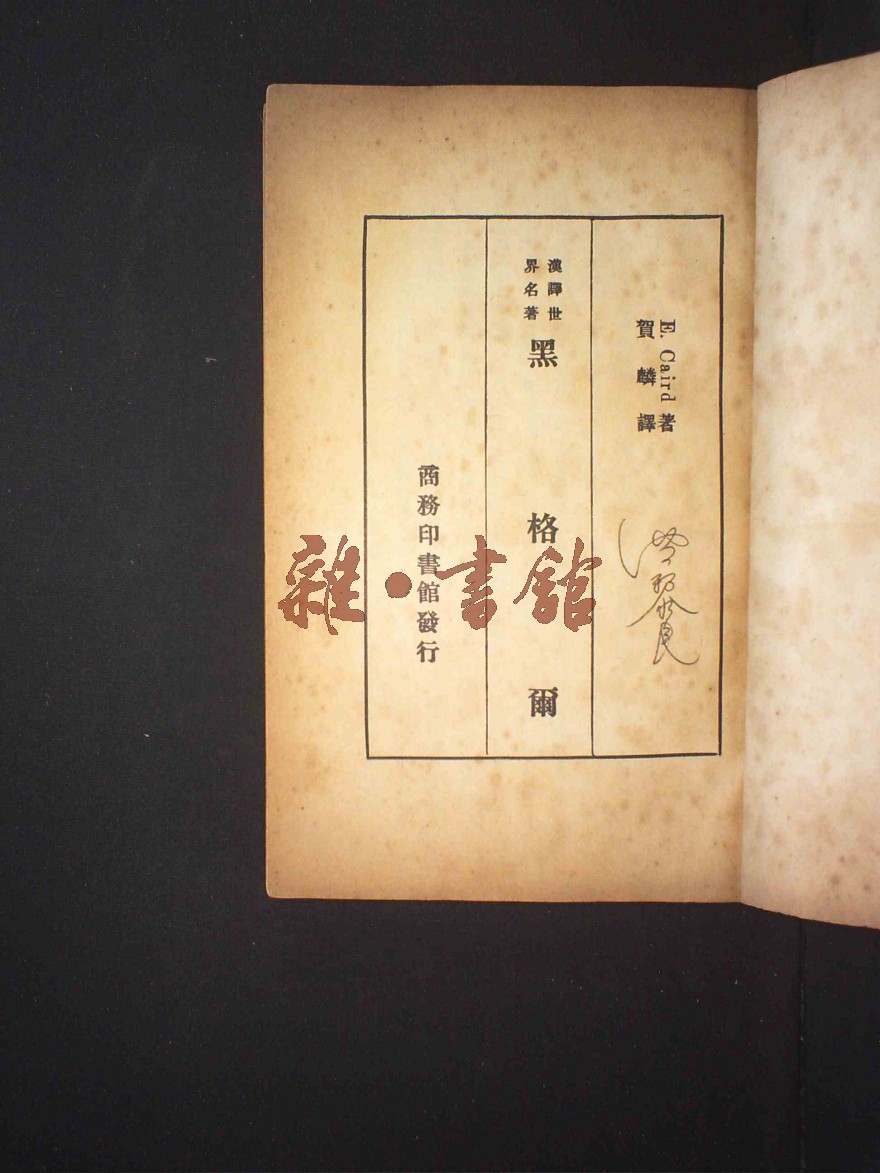 E. Caird 著
賀麟譯
漢譯世
界名著
黑格爾
商務印書館發行
雜·書館